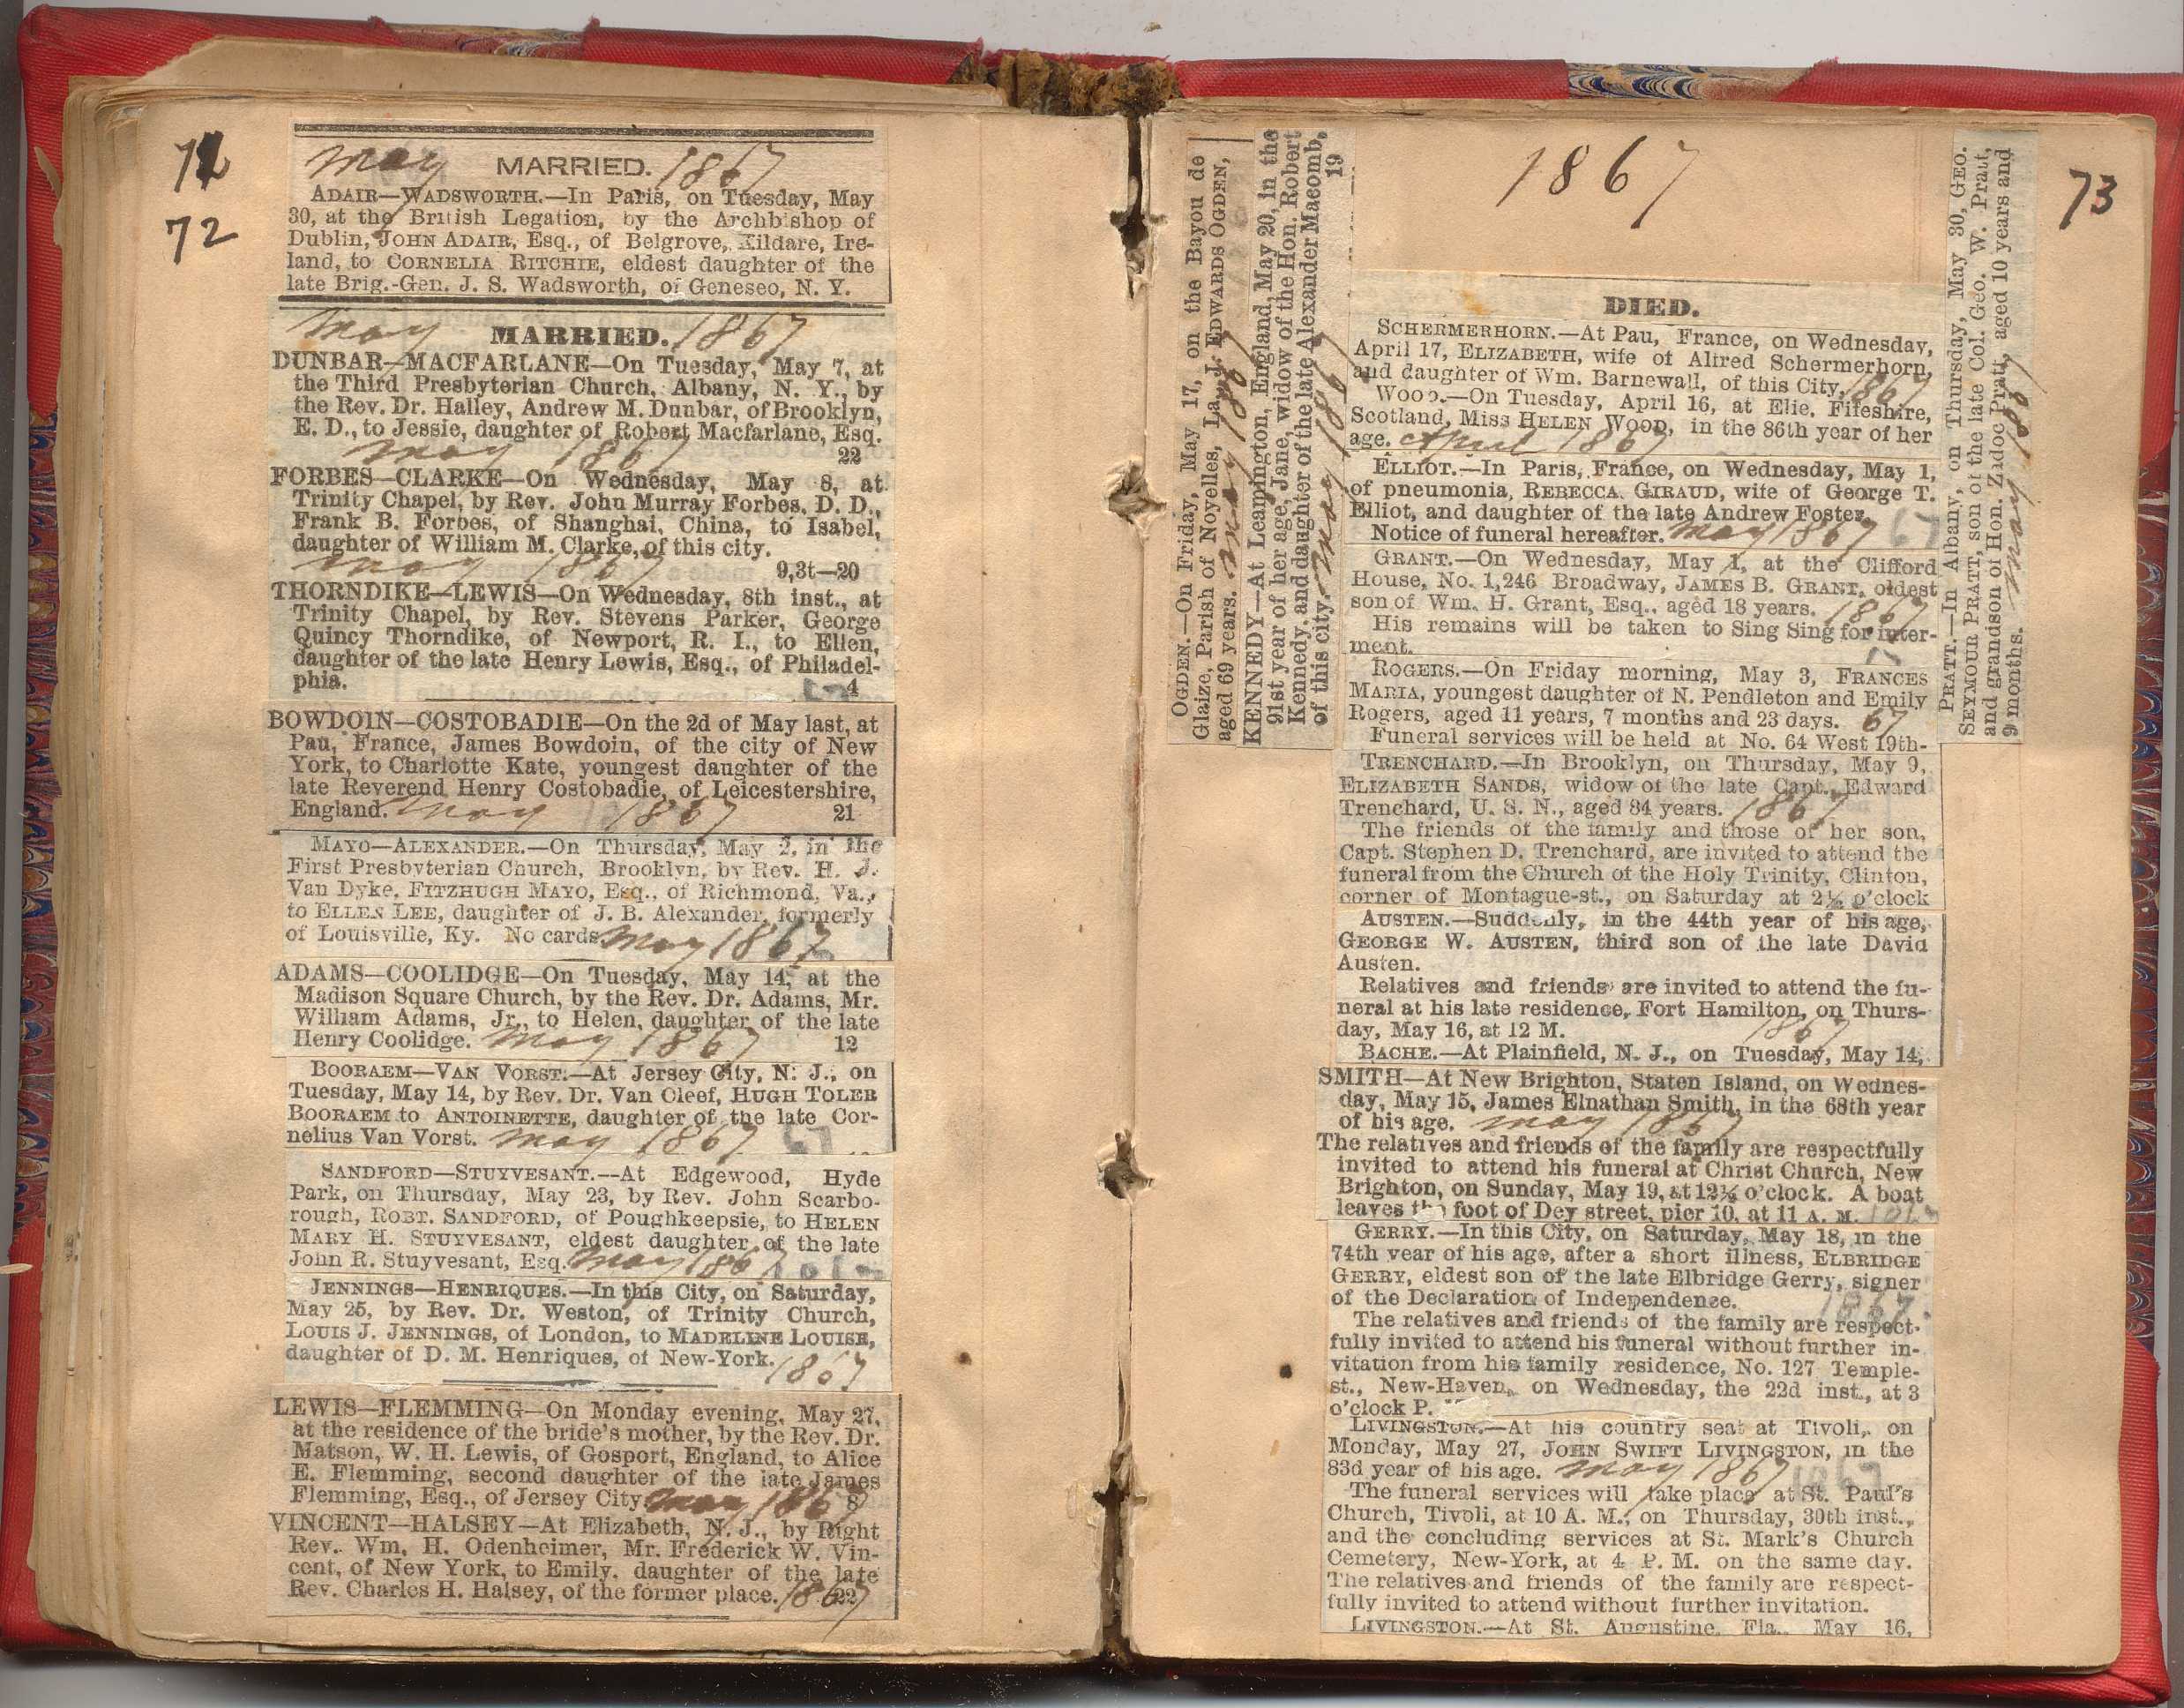 71
72
MARRIED.
May 1867
ADAIR—WADSWORTH.—In Paris, on Tuesday, May
30, at the British Legation, by the Archbishop of
Dublin, JOHN ADAIR, Esq., of Belgrove, Kildare, Ire-
land, to CORNELIA RITCHIE, eldest daughter of the
late Brig.-Gen. J. S. Wadsworth, of Geneseo, N. Y.
May 1867
MARRIED.
DUNBAR—MACFARLANE—On Tuesday, May 7, at
the Third Presbyterian Church, Albany, N. Y., by
the Rev. Dr. Halley, Andrew M. Dunbar, of Brooklyn,
E. D., to Jessie, daughter of Robert Macfarlane, Esq.
May 1867 22
FORBES—CLARKE—On Wednesday, May 8, at
Trinity Chapel, by Rev. John Murray Forbes, D. D.,
Frank B. Forbes, of Shanghai, China, to Isabel,
daughter of William M. Clarke, of this city.
May 1867 9,3t—20
THORNDIKE—LEWIS—On Wednesday, 8th inst., at
Trinity Chapel, by Rev. Stevens Parker, George
Quincy Thorndike, of Newport, R. I., to Ellen,
daughter of the late Henry Lewis, Esq., of Philadel-
phia. 4
BOWDOIN—COSTOBADIE—On the 2d of May last, at
Pau, France, James Bowdoin, of the city of New
York, to Charlotte Kate, youngest daughter of the
late Reverend Henry Costobadie, of Leicestershire,
England. May 1867 21
MAYO—ALEXANDER.—On Thursday, May 2, in the
First Presbyterian Church, Brooklyn, by Rev. H. J.
Van Dyke, FITZHUGH MAYO, Esq., of Richmond, Va.,
to ELLEN LEE, daughter of J. B. Alexander, formerly
of Louisville, Ky. No cards. May 1867
ADAMS—COOLIDGE—On Tuesday, May 14, at the
Madison Square Church, by the Rev. Dr. Adams, Mr.
William Adams, Jr., to Helen, daughter of the late
Henry Coolidge. May 1867 12
BOORAEM—VAN VORST.—At Jersey City, N. J., on
Tuesday, May 14, by Rev. Dr. Van Cleef, HUGH TOLER
BOORAEM to ANTOINETTE, daughter of the late Cor-
nelius Van Vorst. May 1867
SANDFORD—STUYVESANT.—At Edgewood, Hyde
Park, on Thursday, May 23, by Rev. John Scarbo-
rough, ROBT. SANDFORD, of Poughkeepsie, to HELEN
MARY H. STUYVESANT, eldest daughter of the late
John R. Stuyvesant, Esq. May 1867
JENNINGS—HENRIQUES.—In this City, on Saturday,
May 25, by Rev. Dr. Weston, of Trinity Church,
LOUIS J. JENNINGS, of London, to MADELINE LOUISE,
daughter of D. M. Henriques, of New-York. 1867
LEWIS—FLEMMING—On Monday evening, May 27,
at the residence of the bride's mother, by the Rev. Dr.
Matson, W. H. Lewis, of Gosport, England, to Alice
E. Flemming, second daughter of the late James
Flemming, Esq., of Jersey City. May 1867 8
VINCENT—HALSEY—At Elizabeth, N. J., by Right
Rev. Wm. H. Odenheimer, Mr. Frederick W. Vin-
cent, of New York, to Emily, daughter of the late
Rev. Charles H. Halsey, of the former place. 1867 22
OGDEN.—On Friday, May 17, on the Bayou de
Glaize, Parish of Noyelles, La., J. EDWARDS OGDEN,
aged 69 years. May 1867
KENNEDY—At Leamington, England, May 20, in the
91st year of her age, Jane, widow of the Hon. Robert
Kennedy, and daughter of the late Alexander Macomb,
of this city. May 1867 19
1867
73
DIED.
SCHERMERHORN.—At Pau, France, on Wednesday,
April 17, ELIZABETH, wife of Alfred Schermerhorn,
and daughter of Wm. Barnewall, of this City. 1867
WOOD.—On Tuesday, April 16, at Elie, Fifeshire,
Scotland, Miss HELEN WOOD, in the 86th year of her
age. April 1867
ELLIOT.—In Paris, France, on Wednesday, May 1,
of pneumonia, REBECCA GIRAUD, wife of George T.
Elliot, and daughter of the late Andrew Foster.
Notice of funeral hereafter. May 1867
GRANT.—On Wednesday, May 1, at the Clifford
House, No. 1,246 Broadway, JAMES B. GRANT, oldest
son of Wm. H. Grant, Esq., aged 18 years. 1867
His remains will be taken to Sing Sing for inter-
ment.
ROGERS.—On Friday morning, May 3, FRANCES
MARIA, youngest daughter of N. Pendleton and Emily
Rogers, aged 11 years, 7 months and 23 days. 67
Funeral services will be held at No. 64 West 19th-
TRENCHARD.—In Brooklyn, on Thursday, May 9,
ELIZABETH SANDS, widow of the late Capt. Edward
Trenchard, U. S. N., aged 84 years. 1867
The friends of the family and those of her son,
Capt. Stephen D. Trenchard, are invited to attend the
funeral from the Church of the Holy Trinity, Clinton,
corner of Montague-st., on Saturday at 2½ o'clock
AUSTEN.—Suddenly, in the 44th year of his age,
GEORGE W. AUSTEN, third son of the late David
Austen.
Relatives and friends are invited to attend the fu-
neral at his late residence, Fort Hamilton, on Thurs-
day, May 16, at 12 M. 1867
BACHE.—At Plainfield, N. J., on Tuesday, May 14,
SMITH—At New Brighton, Staten Island, on Wednes-
day, May 15, James Elnathan Smith, in the 68th year
of his age. May 1867
The relatives and friends of the family are respectfully
invited to attend his funeral at Christ Church, New
Brighton, on Sunday, May 19, at 12½ o'clock. A boat
leaves the foot of Dey street, pier 10, at 11 A. M.
GERRY.—In this City, on Saturday, May 18, in the
74th year of his age, after a short illness, ELBRIDGE
GERRY, eldest son of the late Elbridge Gerry, signer
of the Declaration of Independence. 1867
The relatives and friends of the family are respect-
fully invited to attend his funeral without further in-
vitation from his family residence, No. 127 Temple-
st., New-Haven, on Wednesday, the 22d inst., at 3
o'clock P.
LIVINGSTON.—At his country seat at Tivoli, on
Monday, May 27, JOHN SWIFT LIVINGSTON, in the
83d year of his age. May 1867
The funeral services will take place at St. Paul's
Church, Tivoli, at 10 A. M., on Thursday, 30th inst.,
and the concluding services at St. Mark's Church
Cemetery, New-York, at 4 P. M. on the same day.
The relatives and friends of the family are respect-
fully invited to attend without further invitation.
LIVINGSTON.—At St. Augustine, Fla., May 16,
PRATT.—In Albany, on Thursday, May 30, GEO.
SEYMOUR PRATT, son of the late Col. Geo. W. Pratt,
and grandson of Hon. Zadoc Pratt, aged 10 years and
9 months. May 1867